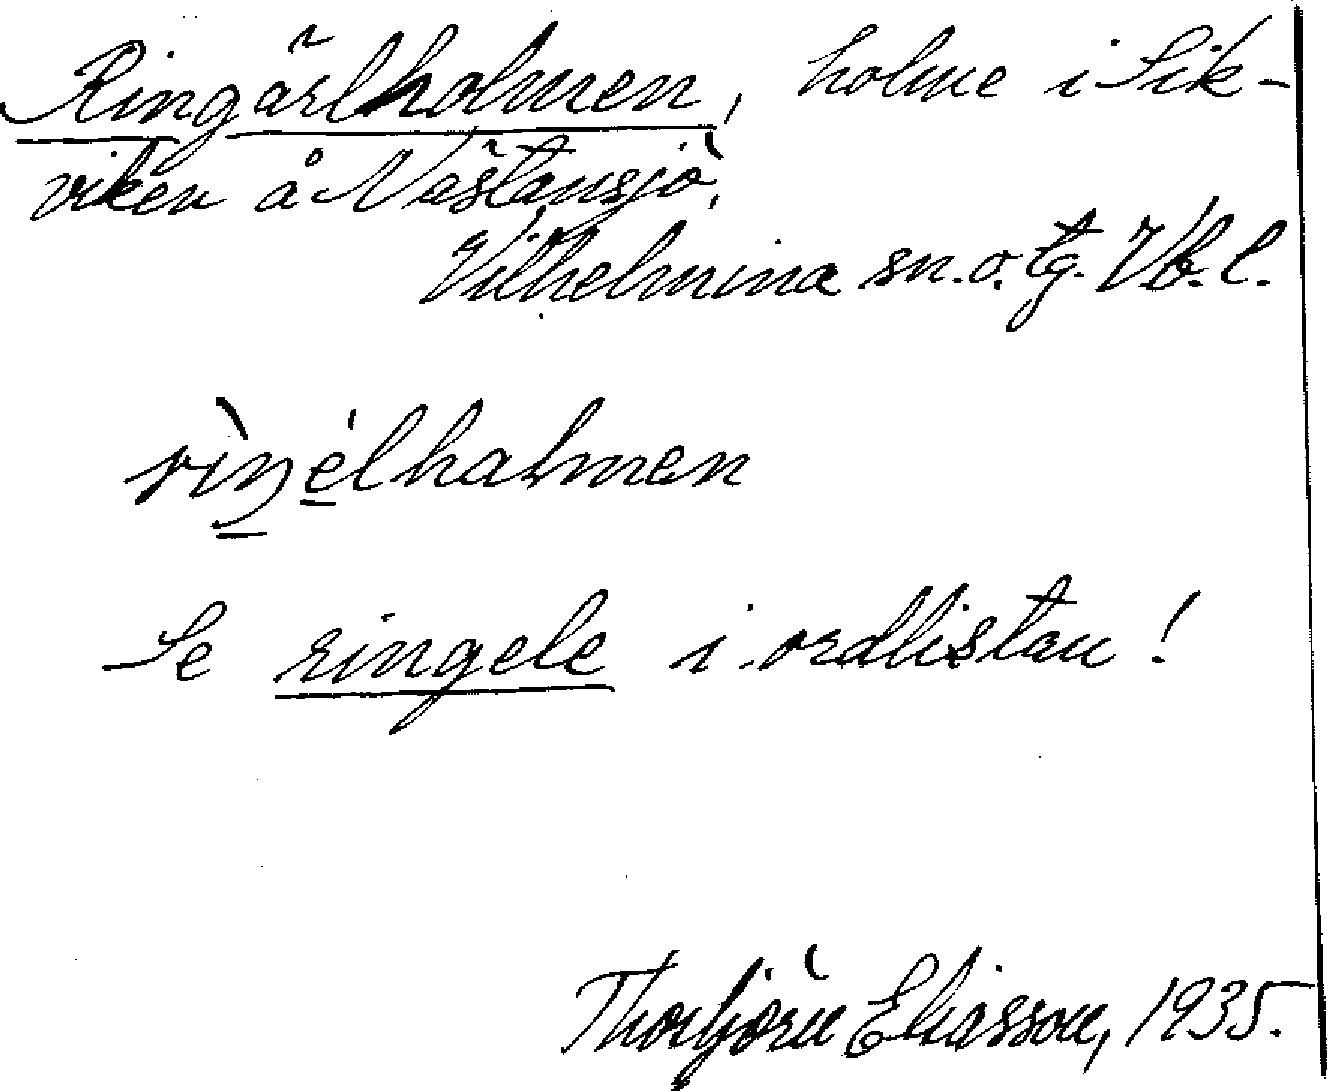 Ringärlholmen, holme i Sik-
viken å Västansjö,
Vilhelmina sn. o. tg. Vb. l.
rìŋélhalmen
Se ringele i ordlistan!
Thorbjörn Eliasson, 1935.